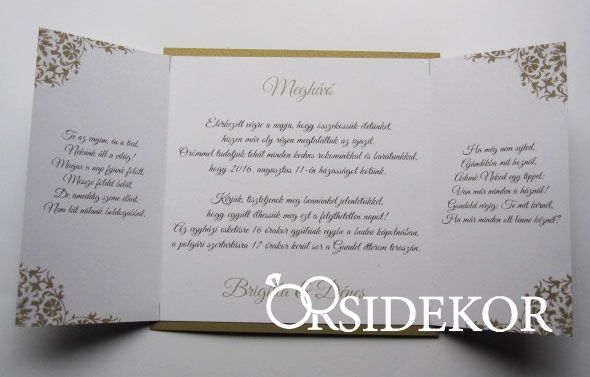 Te az enyim, én a tied,
Nekünk áll a világ!
Magas a nap fejünk fölött,
Messze földit belát,
De ameddig szeme elhat,
Nem lát nálunk boldogabbat.
Meghívó
Elérkezett végre a napja, hogy összekössük életünket,
hiszen már oly régen megtaláltuk az igazit.
Örömmel tudatjuk tehát minden kedves rokonunkkal és barátunkkal,
hogy 2016. augusztus 11-én házasságot kötünk.
Kérjük, tiszteljenek meg bennünket jelenlétükkel,
hogy együtt élhessük meg ezt a felejthetetlen napot!
Az egyházi esketésre 16 órakor gyűlünk egybe a budai kápolnában,
a polgári szertartásra 17 órakor kerül sor a Gundel étterem teraszán.
Brigitta és Dénes
Ha még nem sejted,
Ajándékba mit hoznál,
Adunk Neked egy tippet:
Van már minden a háznál!
Gondold végig: Te mit kérnél,
Ha már minden ott lenne kéznél?
ORSIDEKOR